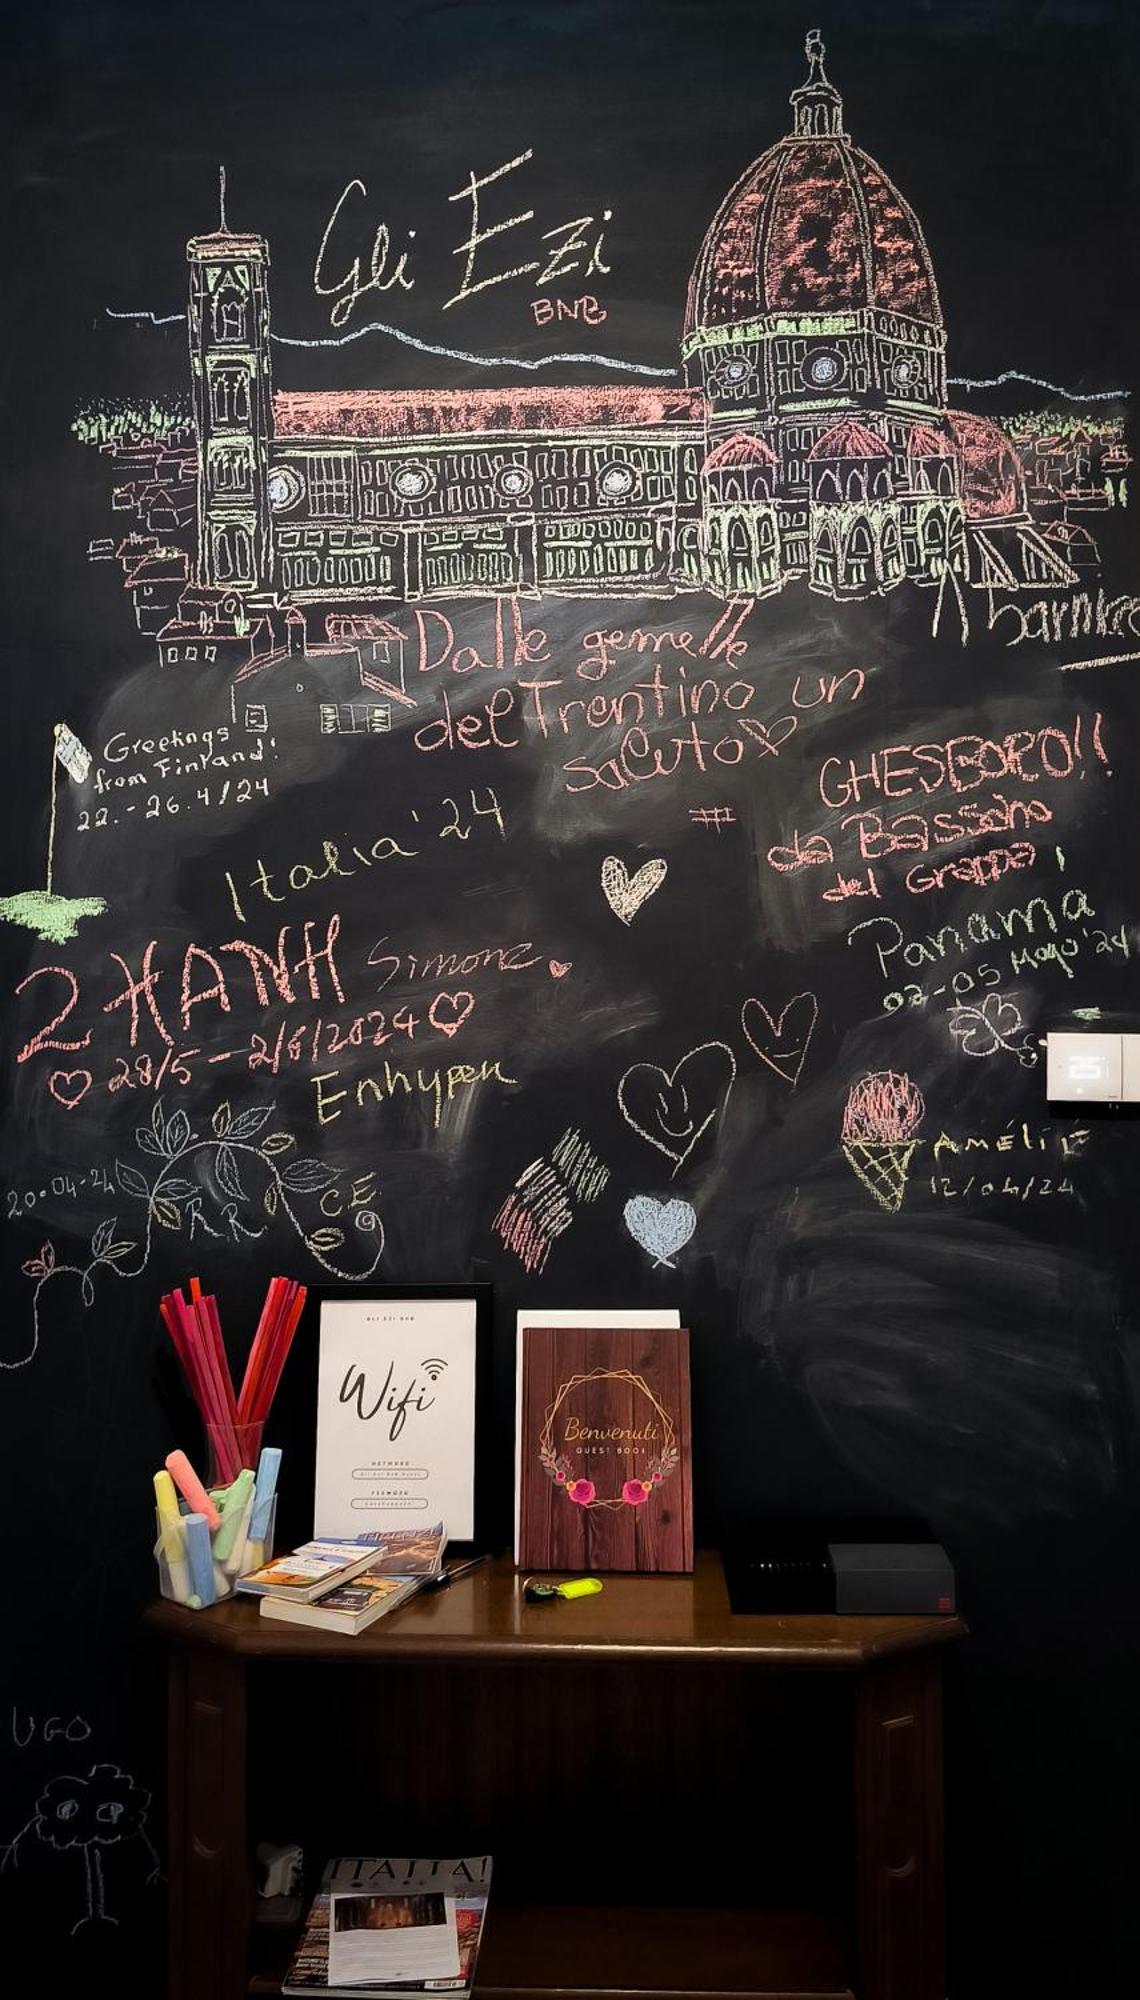 Gli Ezi
BNB
Dalle gemelle
del Trentino un
saluto
Greetings
from Finland!
22.-26.4/24
Italia '24
GHESBORO!!
da Bassano
del Grappa
Panama
02-05 Mayo '24
2 HANH Simone
28/5 - 2/6/2024
Enhypen
20-04-24
R R
C.E.
AMÉLIE
12/04/24
GLI EZI BNB
Wifi
NETWORK
Benvenuti
GUEST BOOK
FIRENZE
UGO
ITALIA!